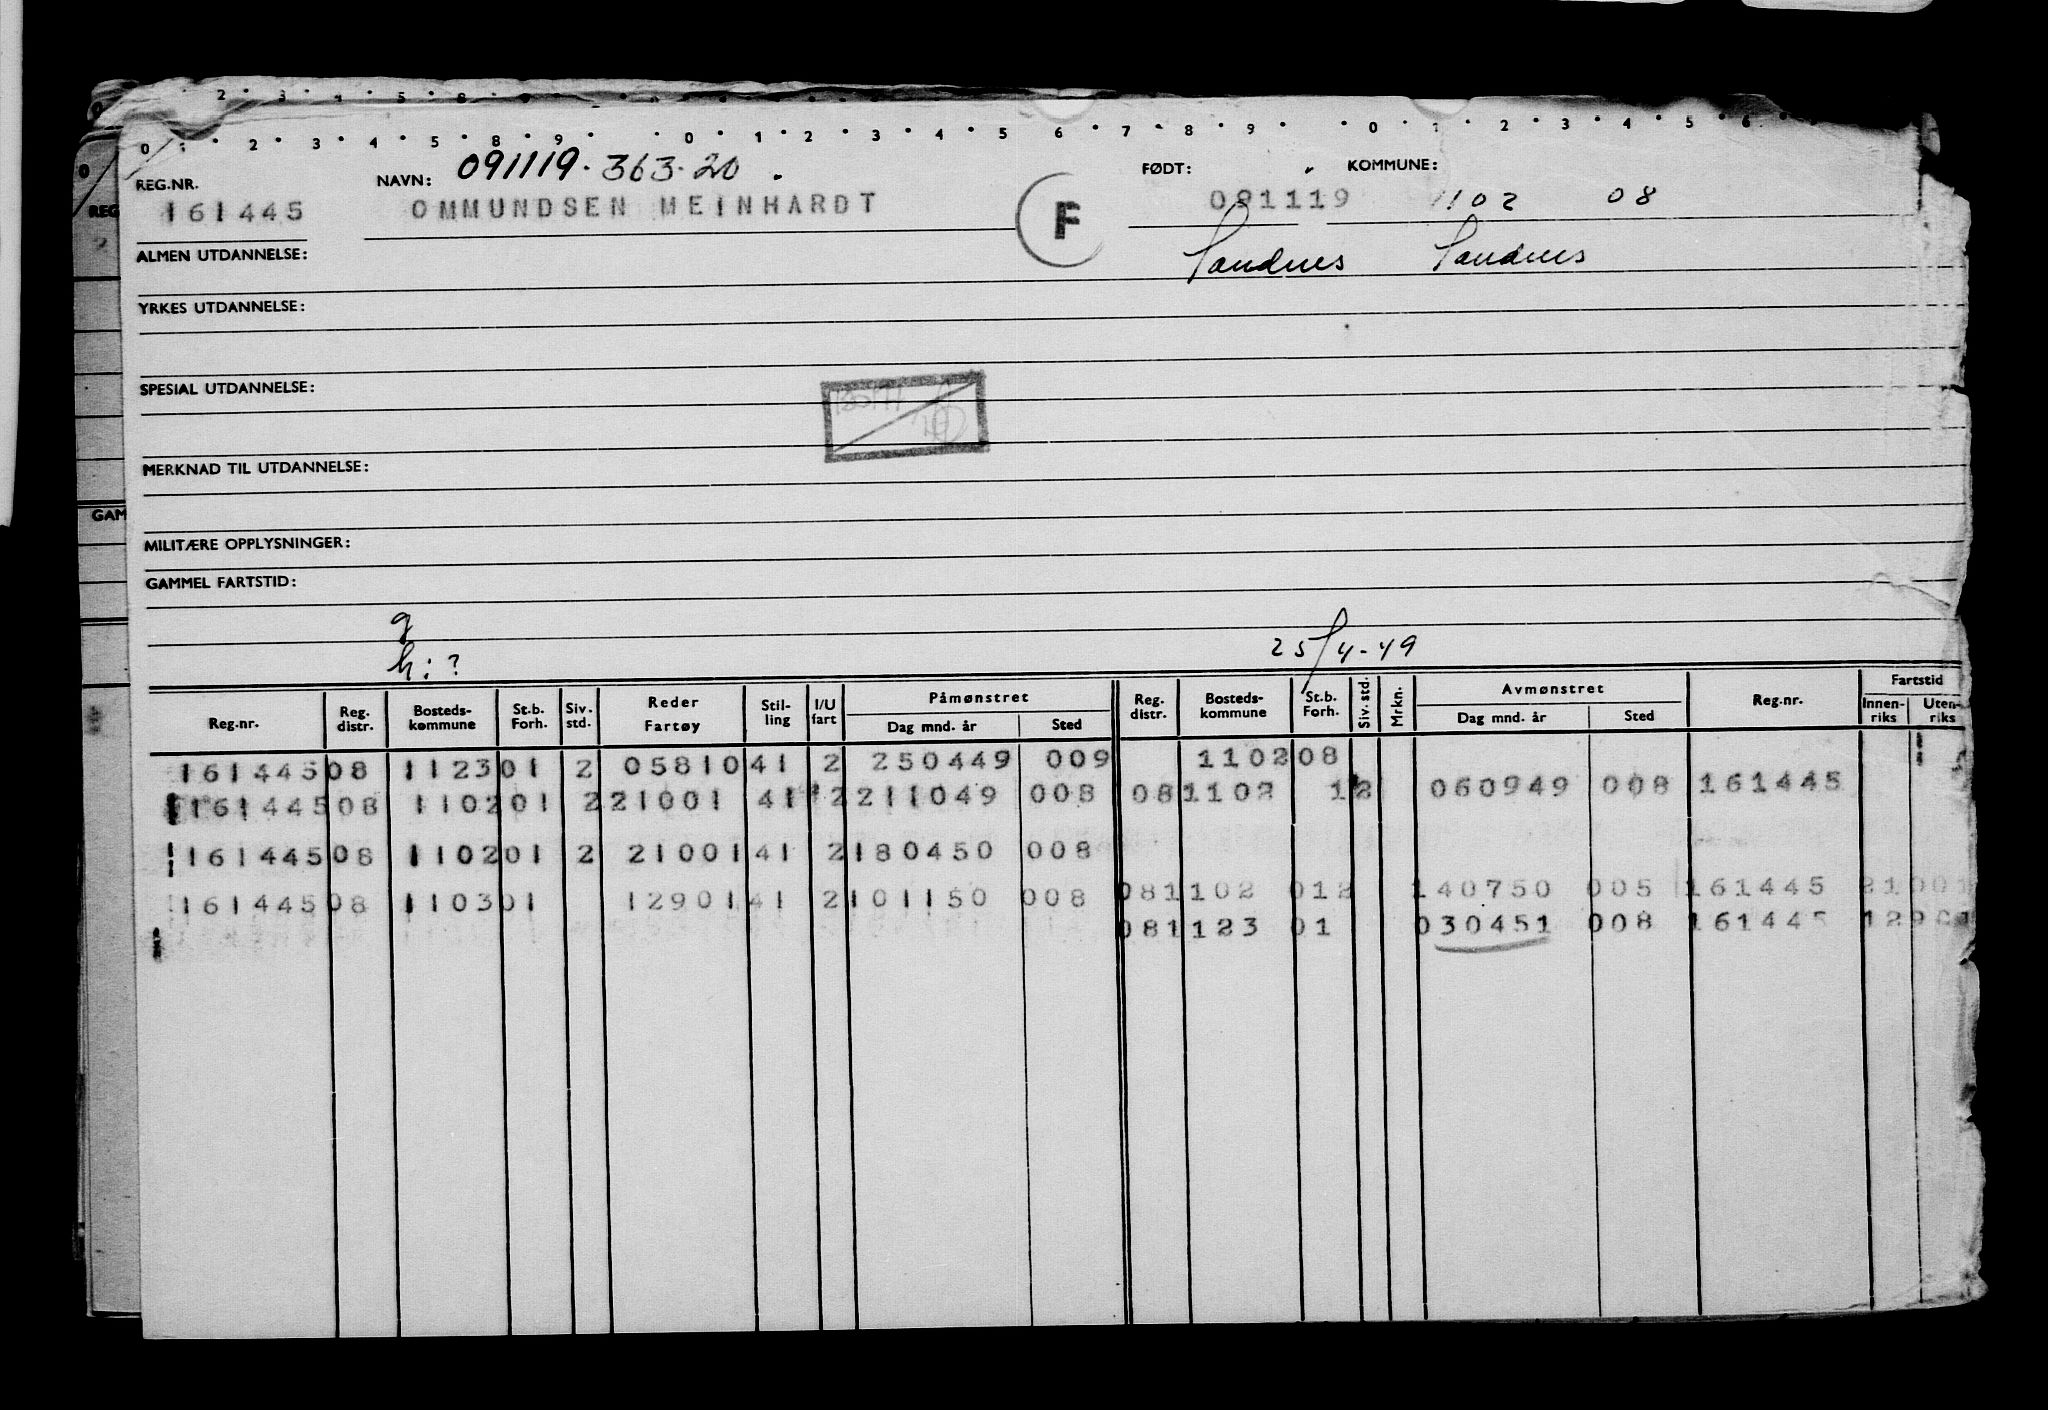 0 2 3 4 5 8 9 0 1 2 3 4 5 6 7 8 9 0 1 2 3 4 5 6
REG.NR. NAVN: 091119.363.20. FØDT: KOMMUNE:
161445 OMMUNDSEN MEINHARDT F 091119 1102 08
ALMEN UTDANNELSE: Sandnes Sandnes
YRKES UTDANNELSE:
SPESIAL UTDANNELSE:
MERKNAD TIL UTDANNELSE:
MILITÆRE OPPLYSNINGER:
GAMMEL FARTSTID:
g
h:? 25/4-49
Reg.nr. Reg. distr. Bosteds- kommune St.b. Forh. Siv. std. Reder Fartøy Stil- ling I/U fart Påmønstret Dag mnd. år Sted Reg. distr. Bosteds- kommune St.b. Forh. Siv. std. Mrkn. Avmønstret Dag mnd. år Sted Reg.nr. Fartstid Innen- riks Uten- riks
161445 08 1123 01 2 05810 41 2 250449 009 1102 08
161445 08 1102 01 2 21001 41 2 211049 008 08 1102 1 2 060949 008 161445
161445 08 1102 01 2 21001 41 2 180450 008
161445 08 1103 01 12901 41 2 101150 008 08 1102 01 2 140750 005 161445 21001
08 1123 01 030451 008 161445 12901